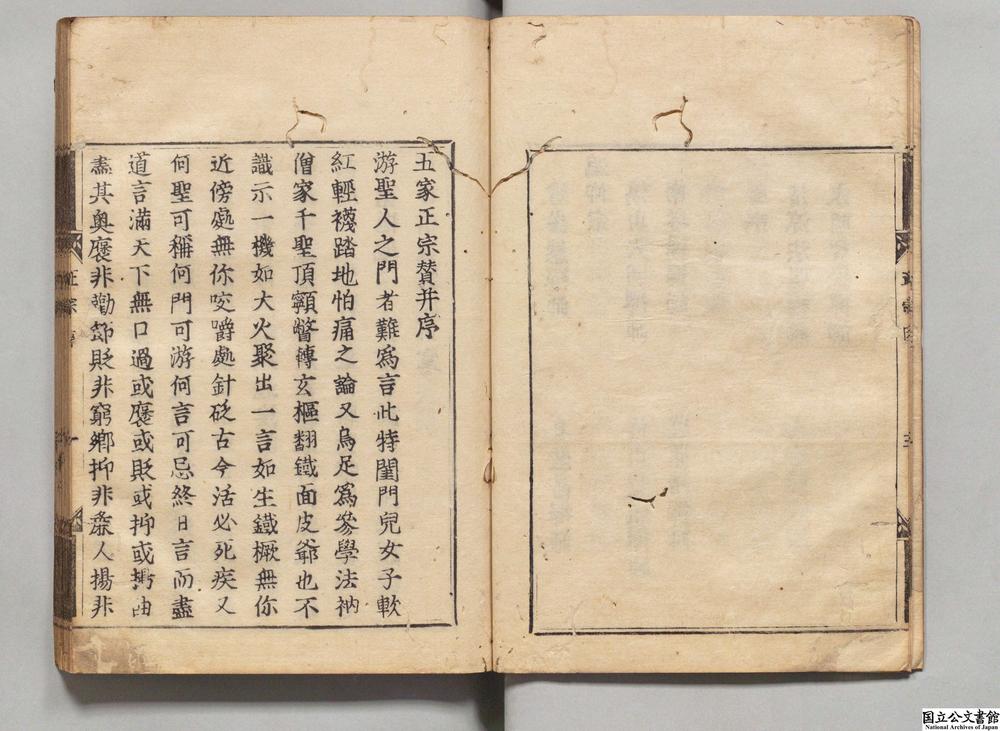 五家正宗贊并序
游聖人之門者難爲言此特閨門兒女子軟
紅輕襪踏地怕痛之論又烏足爲參學法衲
僧家千聖頂𩕳瞥轉玄樞翻鐵面皮爺也不
識示一機如大火聚出一言如生鐵橛無你
近傍處無你咬嚼處針砭古今活必死疾又
何聖可稱何門可游何言可忌終日言而盡
道言滿天下無口過或褒或貶或抑或揚由
盡其奧褒非勸節貶非窮鄉抑非殺人揚非
正宗 序
一
国立公文書館
National Archives of Japan